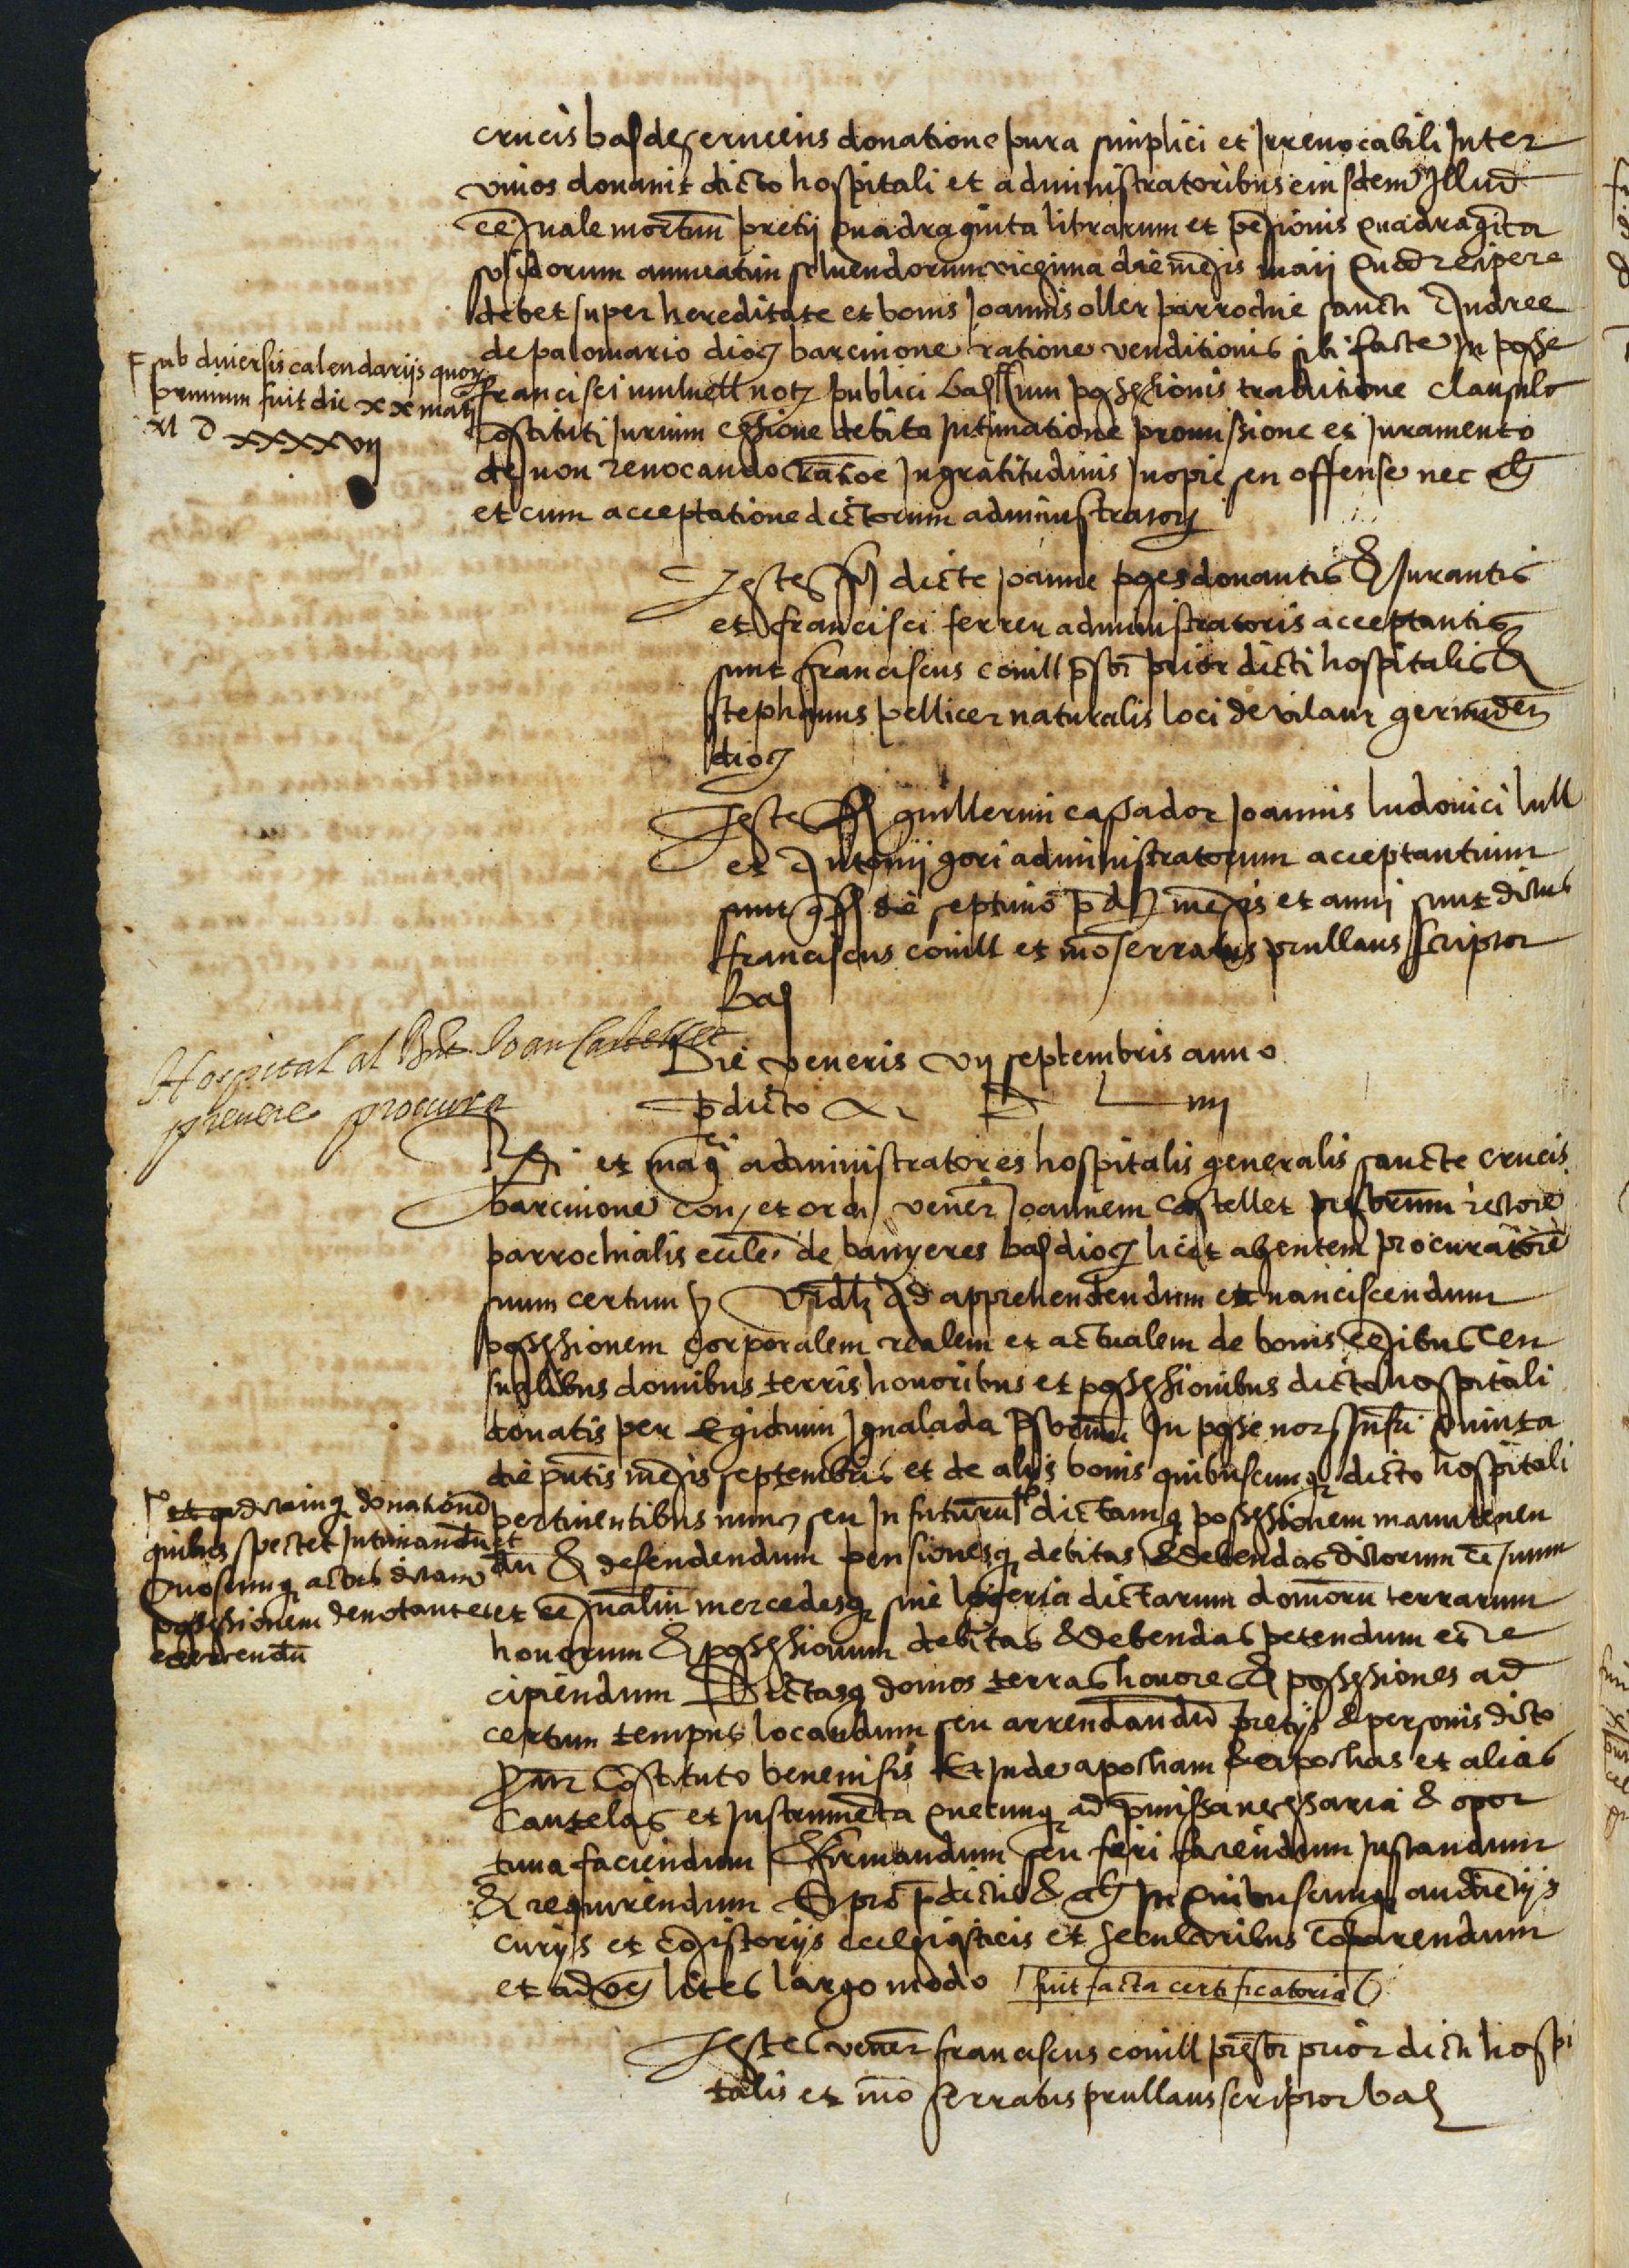 crucis bar deserviens donatione pura simplici et Irrevocabili Inter
vivos donavit dicto hospitali et administratoribus eiusdem Illud
cēsuale mortuū pretii quadraginta librarum et pēsionis quadraginta
solidorum annuatim solvendorum vicesima die mēsis maii quod recipere
debet super hereditate et bonis Joannis oller parrochie sancti Andree
de palomario dioc barcinone ratione venditionis sibi facte In posse
francisci mulnell not publici bar Cum possessionis traditione clausula
Cōstituti Jurium cessione debita Intimatione promissione et Juramento
de non revocando ratiōe Ingratitudinis Inopie seu offense nec
et cum acceptatione dictorum administrator
sub diversis calendariis quor
primum fuit die xx maii
M D xxxxvii
Testes dicte Joanne pages donantis & Jurantis
et francisci ferrer administratoris acceptantis
sunt franciscus conill p̄sbr prior dicti hospitalis &
stephanus pellicer naturalis loci de vilaur gerunden
dioc
Testes guillermi cassador Joannis ludovici lull
et Antonii gori administratorum acceptantium
sunt die septimo p̄d mēsis et anni sunt dictus
franciscus conill et mōserratus prullans scriptor
bar
Hospital al Joan Castellet
prevere procura
Die veneris vii septembris anno
p̄dicto M D L iiii
R et mag administratores hospitalis generalis sancte crucis
barcinone con et ord vener Joannem Castellet presbrum rectorē
parrochialis eccle de banyeres bar dioc licet absentem procuratorē
suum certum Videl Ad apprehendendum et nanciscendum
possessionem corporalem realem et actualem de bonis cēsibus cen
sualibus domibus terris honoribus et possessionibus dicto hospitali
donatis per Egidium Igualada p̄sbrum In posse not Infr quinta
die p̄ntis mēsis septembris et de aliis bonis quibuscunq dicto hospitali
pertinentibus nunc seu In futurū dictamq possessionem manutenen
dū & defendendum pensionesq debitas & debendas dictorum cēsuum
et cēsualiū mercedesq sive logeria dictarum domorū terrarum
honorum & possessionum debitas & debendas petendum et re
cipiendum Dictasq domos terras honores & possessiones ad
certum tempus locandum seu arrendandū pretiis & personis dicto
Cōstituto benevisis Et Inde apocham & apochas et alias
Cautelas et Instrumēta quecunq ad p̄missa necessaria & opor
tuna faciendum & firmandum seu fieri faciendum Instandum
& requirendum Et pro p̄dictis & In quibuscunq audiētiis
curiis et cōsistoriis ecclesiasticis et secularibus cōparendum
et ad lites largo modo fuit facta certificatoria
donationē
quibus spectet Intimandū et
quoscunq actus dictam
possessionem denotantes
exercendū
Testes vener franciscus conill presbr prior dicti hospi
talis et mō serratus prullans scriptor bar